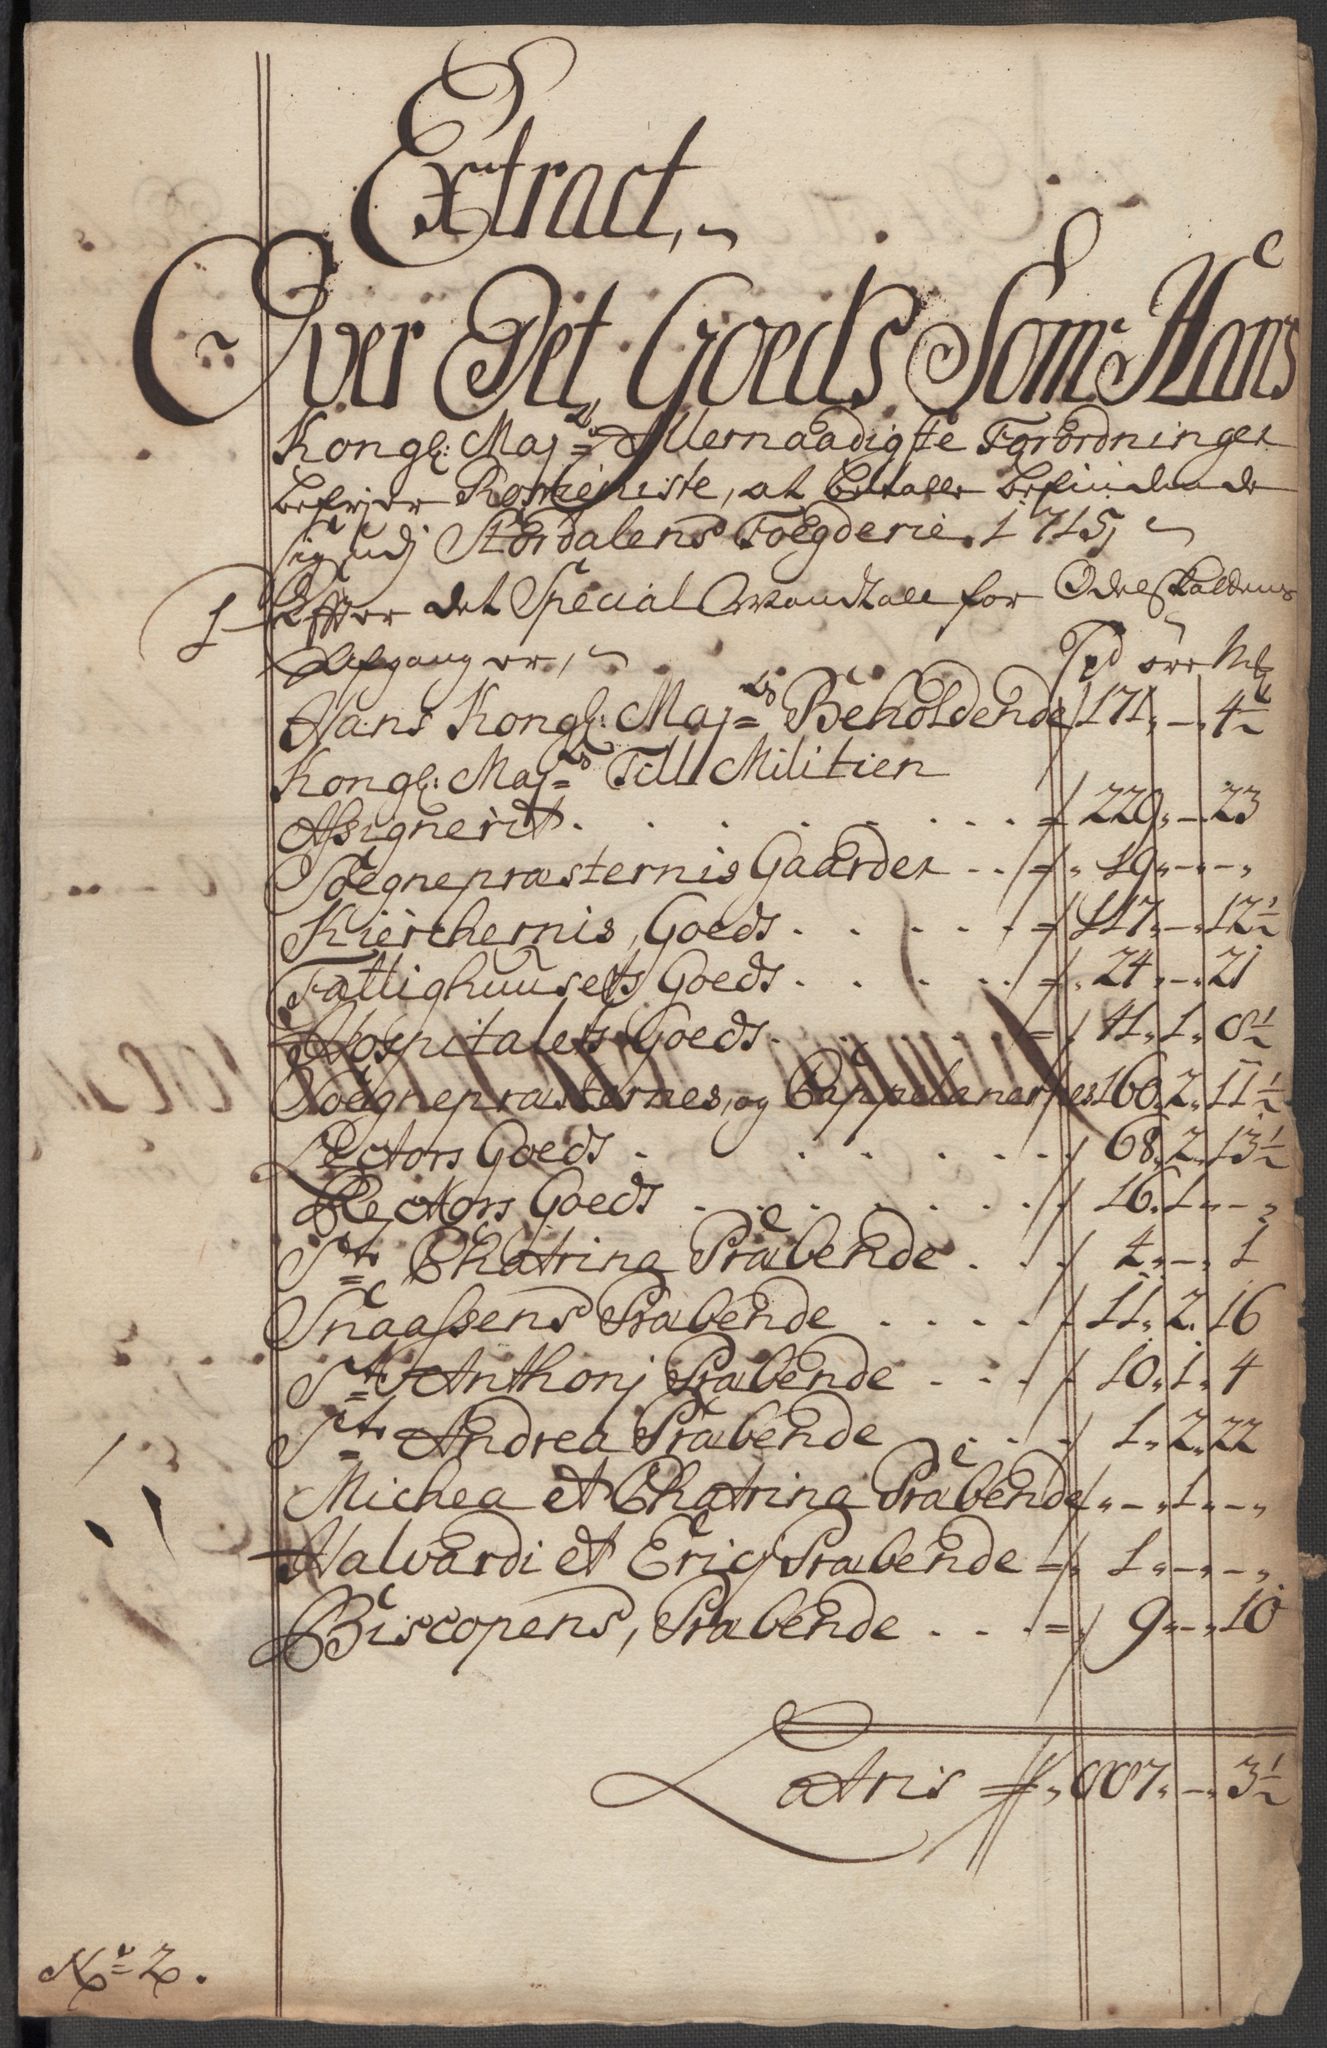 Extract,
Over Det Goeds Som Hans
Kongl: Maj=ts Allernaadigste Forordninger
befrier Rostieniste, at betalle befindende
sig udj Størdalens Foegderie 1715,
1 Effter det Special Mandtall for Odelskattens
Afgang er,
Spd øre Mk
Hans Kongl: Maj=ts Beholdende 171 „ - „ 4½
Kongl: Maj=ts Till Militien
Assignerit . . . . . . . . = 229 „ - „ 23
Sognepræsternis Gaarder . . = „ 19 „ - „ - „
Kierchernis, Goeds . . . . . = 117 „ - „ 12½
Fattighuusets Goeds . . . . = „ 24 „ - „ 21
Hospitalets Goeds . . . . . = „ 41 „ 1 „ 8½
Soegnepræsternes, og Cappelanernes 160 „ 2 „ 11½
Lectors Goeds . . . . . . 68 „ 2 „ 13½
Rectors Goeds . . . . . . . 16 „ 1 „ - „
S=te Chatrina Præbende . . . 4 „ - „ 1
Snaassens Præbende . . . . . 11 „ 2 „ 16
S=te Anthonj Præbende . . . 10 „ 1 „ 4
S=te Andrea Præbende . . . 1 „ 2 „ 22
Michea et Chatrina Præbende „ - „ 1 „ - „
Halvardi et Ericj Præbende = „ 1 „ - „ - „
Biscopens, Præbende . . . = „ 9 „ - „ 10
Latris = „ 887 „ - „ 3½
No= 2.